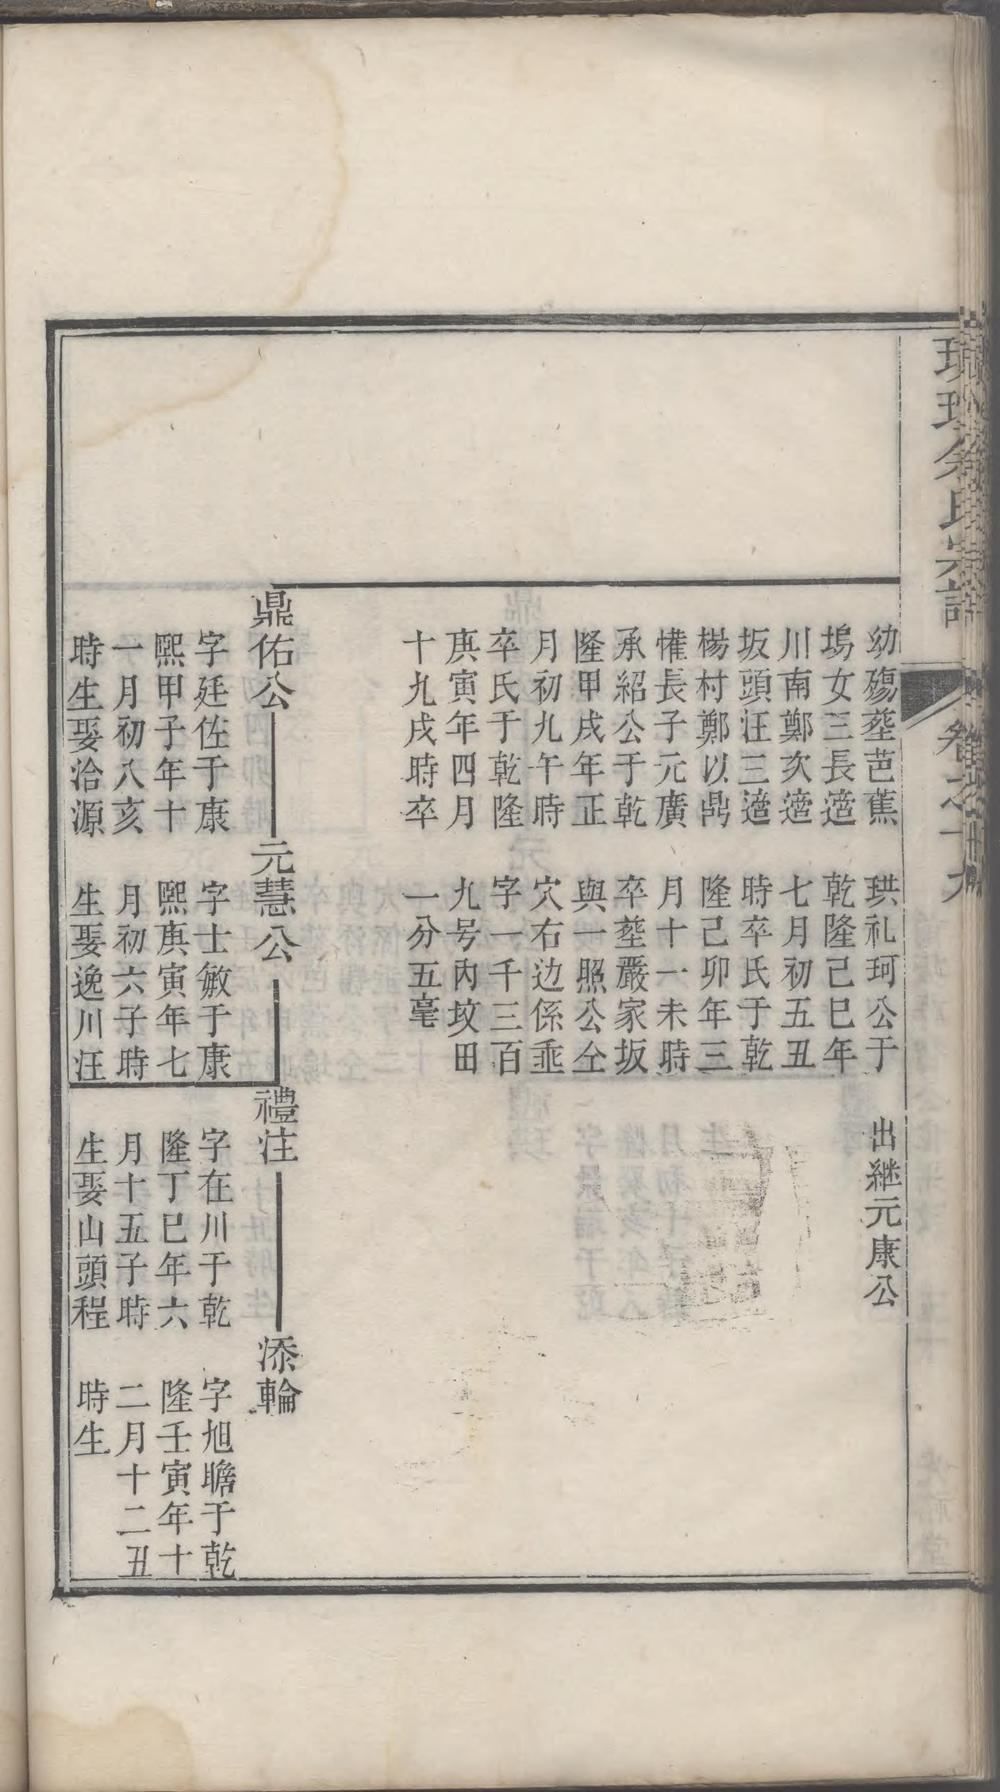 余氏宗譜
卷之十九
幼殤塟芭蕉
塢女三長適
川南鄭次適
坂頭汪三適
楊村鄭以鼎
惟長子元廣
承紹公于乾
隆甲戌年正
月初九午時
卒氏于乾隆
庚寅年四月
十九戌時卒
珙礼珂公于
乾隆己巳年
七月初五丑
時卒氏于乾
隆己卯年三
月十一未時
卒塟嚴家坂
與一照公仝
穴右边係乖
字一千三百
九号內坟田
一分五毫
出継元康公
鼎佑公
字廷佐于康
熙甲子年十
一月初八亥
時生娶洽源
元慧公
字士敏于康
熙庚寅年七
月初六子時
生娶逸川汪
禮注
字在川于乾
隆丁巳年六
月十五子時
生娶山頭程
添輪
字旭瞻于乾
隆壬寅年十
二月十二丑
時生